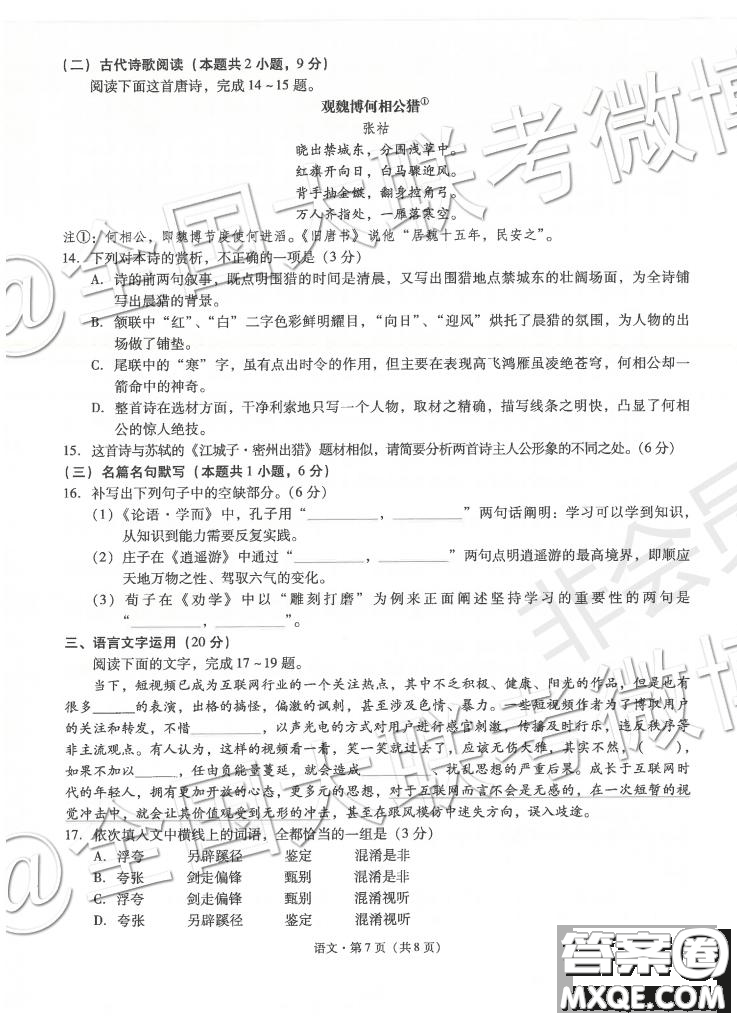 (二) 古代诗歌阅读(本题共2小题，9分)
阅读下面这首唐诗，完成14～15题。
观魏博何相公猎①
张祜
晓出禁城东，分围浅草中。
红旗开向日，白马骤迎风。
背手抽金镞，翻身控角弓。
万人齐指处，一雁落寒空。
注①：何相公，即魏博节度使何进滔。《旧唐书》说他“居魏十五年，民安之”。
14. 下列对本诗的赏析，不正确的一项是(3分)
A. 诗的前两句叙事，既点明围猎的时间是清晨，又写出围猎地点禁城东的壮阔场面，为全诗铺
写出晨猎的背景。
B. 颔联中“红”、“白”二字色彩鲜明耀目，“向日”、“迎风”烘托了晨猎的氛围，为人物的出
场做了铺垫。
C. 尾联中的“寒”字，虽有点出时令的作用，但主要在表现高飞鸿雁虽凌绝苍穹，何相公却一
箭命中的神奇。
D. 整首诗在选材方面，干净利索地只写一个人物，取材之精确，描写线条之明快，凸显了何相
公的惊人绝技。
15. 这首诗与苏轼的《江城子·密州出猎》题材相似，请简要分析两首诗主人公形象的不同之处。(6分)
(三) 名篇名句默写(本题共1小题，6分)
16. 补写出下列句子中的空缺部分。(6分)
(1)《论语·学而》中，孔子用“__________，__________”两句话阐明：学习可以学到知识，
从知识到能力需要反复实践。
(2) 庄子在《逍遥游》中通过“__________，__________”两句点明逍遥游的最高境界，即顺应
天地万物之性、驾驭六气的变化。
(3) 荀子在《劝学》中以“雕刻打磨”为例来正面阐述坚持学习的重要性的两句是
“__________，__________”。
三、语言文字运用(20分)
阅读下面的文字，完成17～19题。
当下，短视频已成为互联网行业的一个关注热点，其中不乏积极、健康、阳光的作品，但是也有
很多______的表演，出格的搞怪，偏激的讽刺，甚至涉及色情、暴力。一些短视频作者为了博取用户
的关注和转发，不惜__________，以声光电的方式对用户进行感官刺激，传播及时行乐、违反秩序等
非主流观点。有人认为，这样的视频看一看，笑一笑就过去了，应该无伤大雅，其实不然，(    )，
如果不加以______，任由负能量蔓延，就会造成__________、扰乱思想的严重后果。成长于互联网时
代的年轻人，拥有更加开放的心态，更多元的思想，对于互联网而言不会是无感的，在一次短暂的视
觉冲击中，就会让其价值观受到无形的冲击，甚至在跟风模仿中迷失方向，误入歧途。
17. 依次填入文中横线上的词语，全都恰当的一组是(3分)
A. 浮夸 另辟蹊径 鉴定 混淆是非
B. 夸张 剑走偏锋 甄别 混淆是非
C. 浮夸 剑走偏锋 甄别 混淆视听
D. 夸张 另辟蹊径 鉴定 混淆视听
语文·第7页(共8页)
@全国大联考微博
非会员
@全国大联考微博
答案圈
MXQE.COM